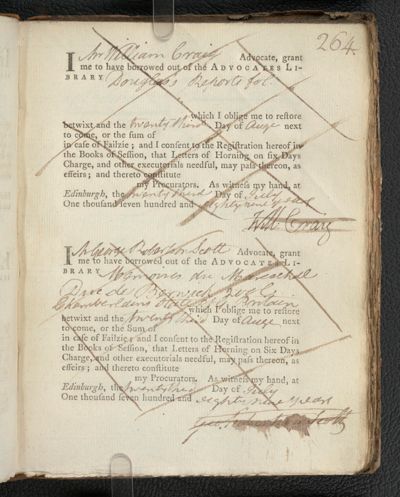 264.
I Mr William Craig Advocate, grant
me to have borrowed out of the ADVOCATES LI-
BRARY Douglas's Reports fol
which I oblige me to restore
betwixt and the twenty third Day of Augt next
to come, or the sum of
in case of Failzie; and I consent to the Registration hereof in
the Books of Session, that Letters of Horning on six Days
Charge, and other executorials needful, may pass thereon, as
effeirs; and thereto constitute
my Procurators. As witness my hand, at
Edinburgh, the twenty third Day of July
One thousand seven hundred and eighty nine years
Will Craig
I Mr George Robertson Scott Advocate, grant
me to have borrowed out of the ADVOCATES LI-
BRARY Memoires du Mareschal
Duc de Berwick
Chamberlains State of Britain
which I oblige me to restore
betwixt and the twenty third Day of Augt next
to come, or the Sum of
in case of Failzie; and I consent to the Registration hereof in
the Books of Session, that Letters of Horning on Six Days
Charge, and other executorials needful, may pass thereon, as
effeirs; and thereto constitute
my Procurators. As witness my hand, at
Edinburgh, the twenty third Day of July
One thousand seven hundred and eighty nine years
Geo. Robertson Scott